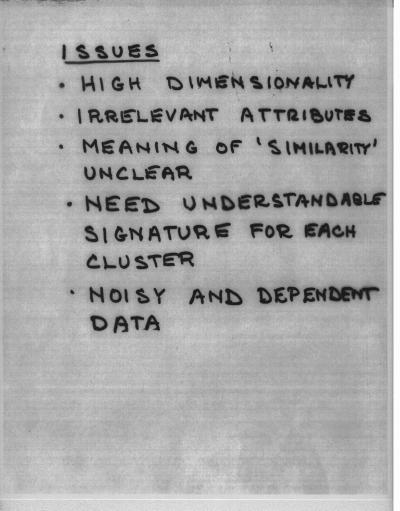 ISSUES
• HIGH DIMENSIONALITY
• IRRELEVANT ATTRIBUTES
• MEANING OF 'SIMILARITY'
UNCLEAR
• NEED UNDERSTANDABLE
SIGNATURE FOR EACH
CLUSTER
• NOISY AND DEPENDENT
DATA